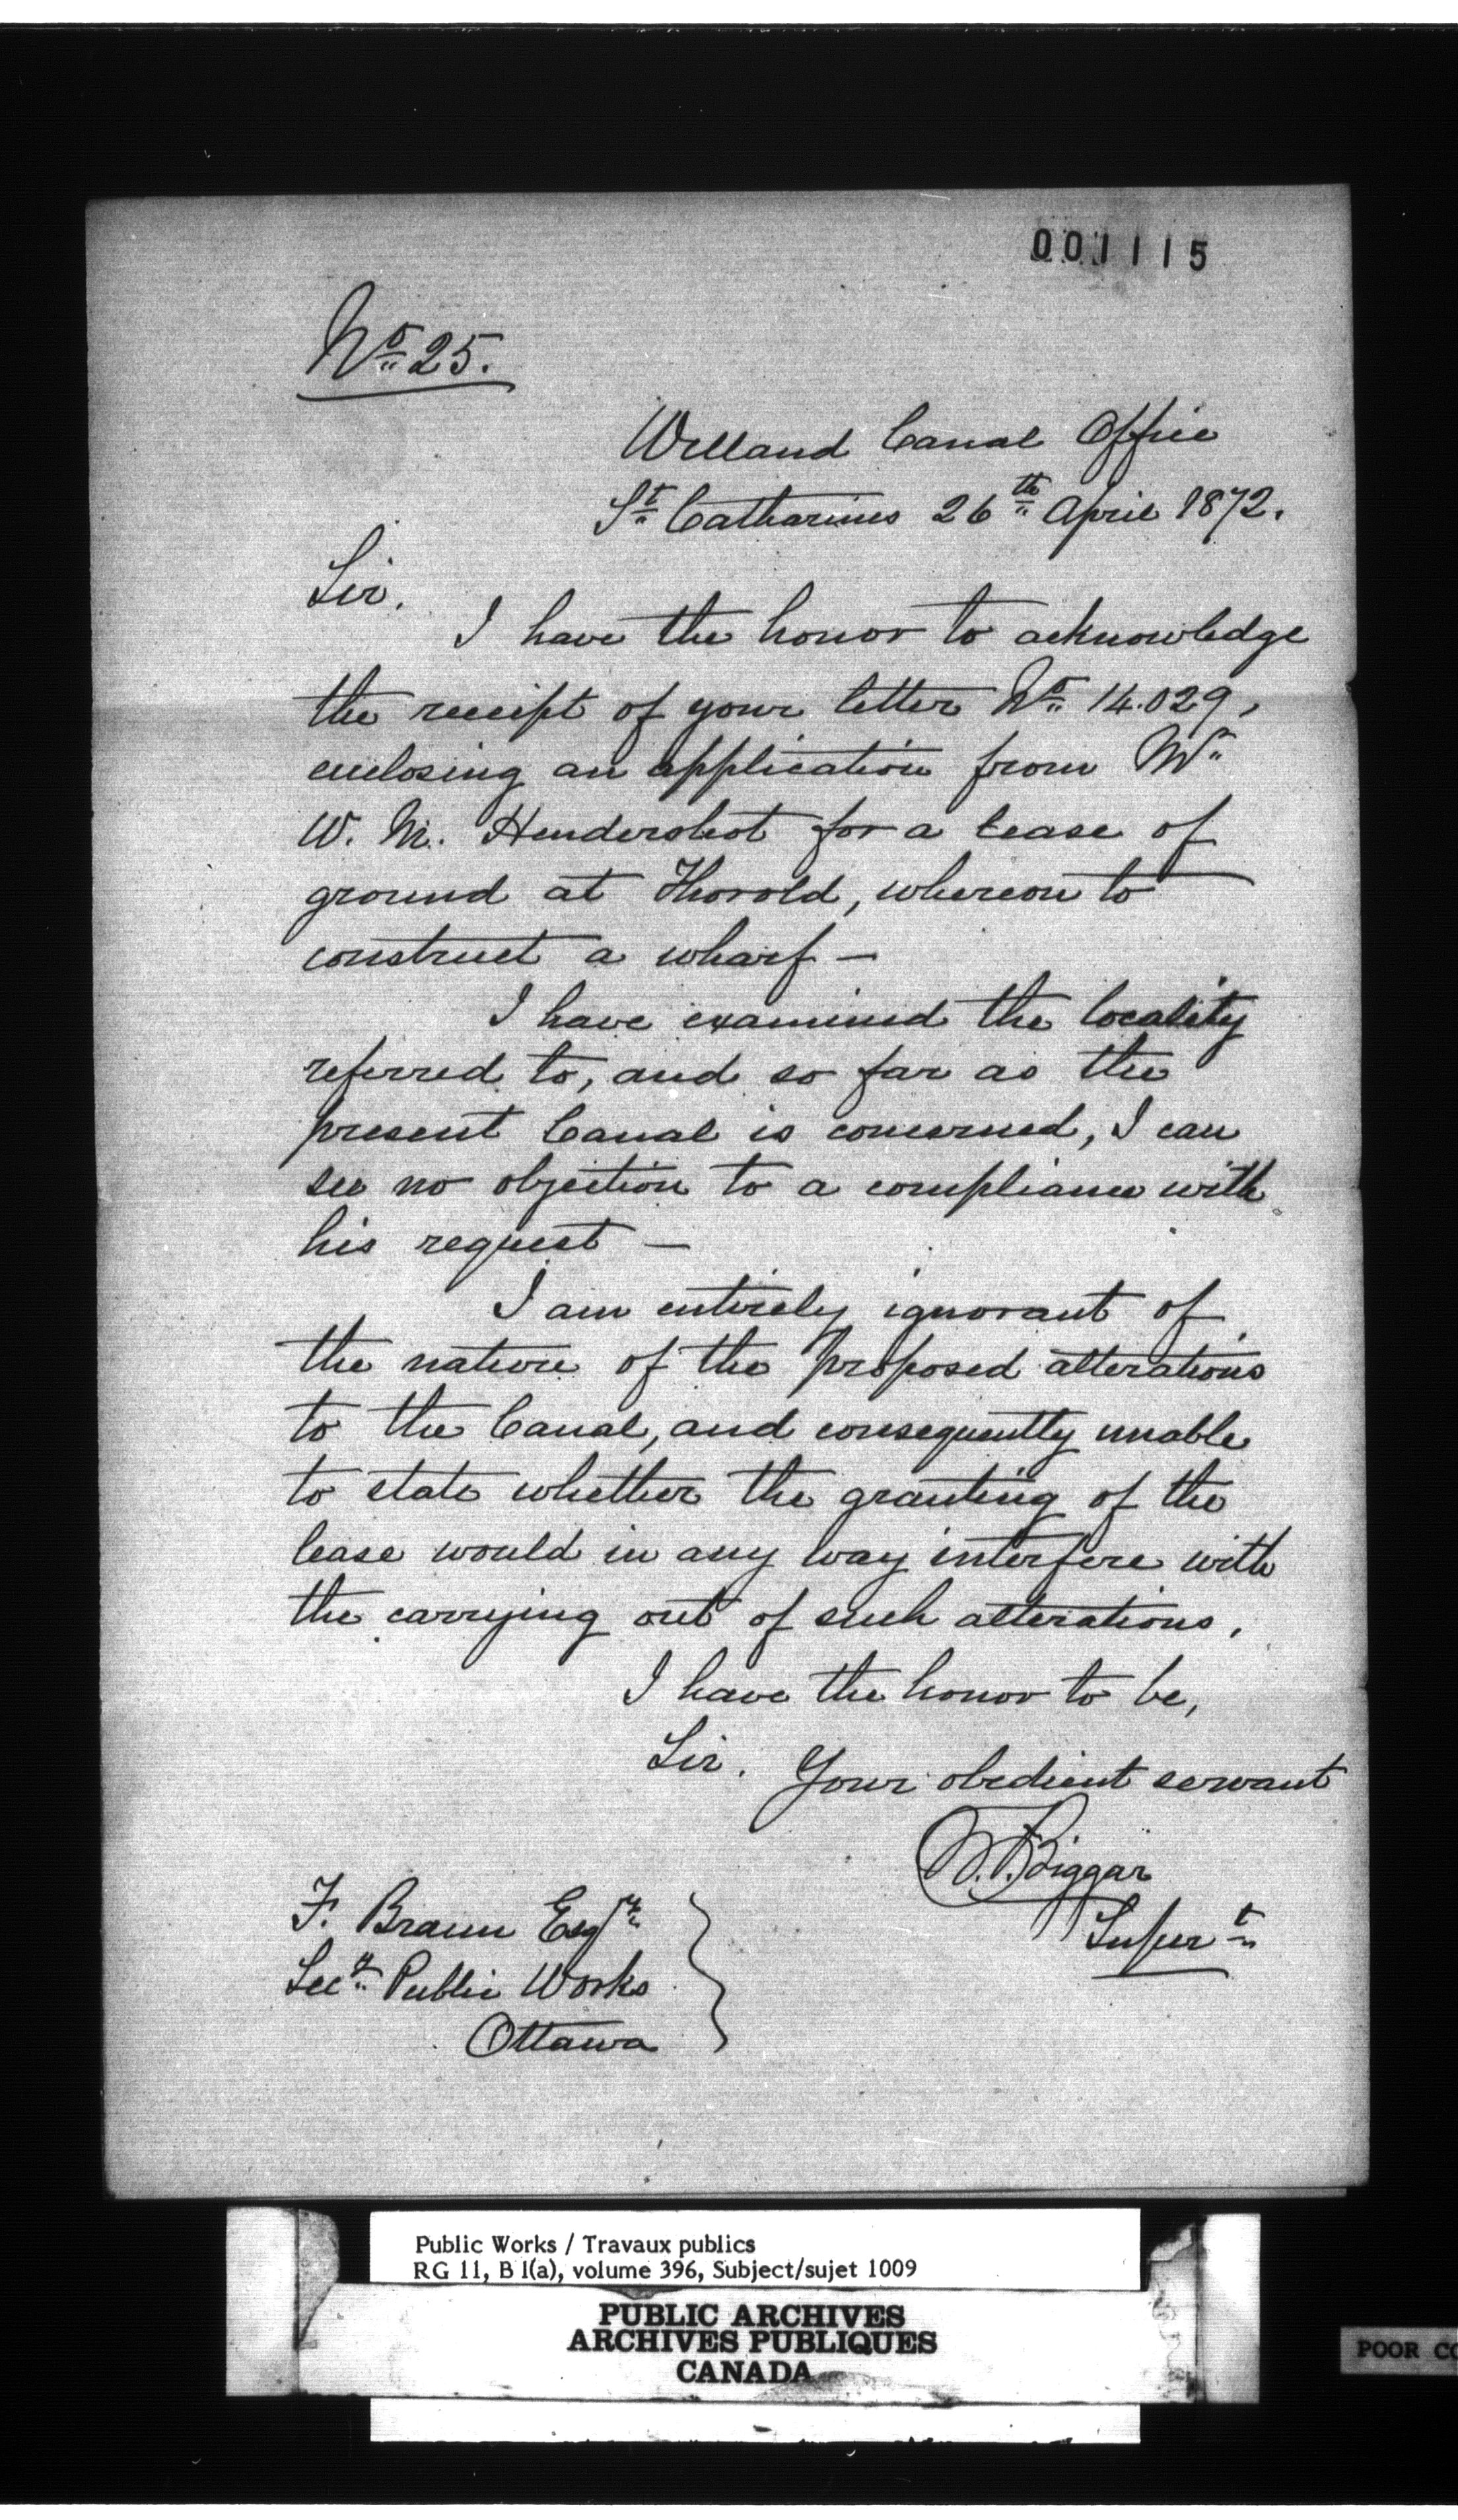 001115
No 25.
Welland Canal Office
St Catharines 26th April 1872.
Sir,
I have the honor to acknowledge
the receipt of your letter No 14.029,
enclosing an application from Mr
W. M. Hendershot for a lease of
ground at Thorold, whereon to
construct a wharf —
I have examined the locality
referred to, and so far as the
present Canal is concerned, I can
see no objection to a compliance with
his request —
I am entirely ignorant of
the nature of the proposed alterations
to the Canal, and consequently unable
to state whether the granting of the
lease would in any way interfere with
the carrying out of such alterations,
I have the honor to be,
Sir. Your obedient servant
Biggar
Supert
F. Braun Esqr
Secy Public Works
Ottawa
Public Works / Travaux publics
RG 11, B 1(a), volume 396, Subject/sujet 1009
PUBLIC ARCHIVES
ARCHIVES PUBLIQUES
CANADA
POOR CO